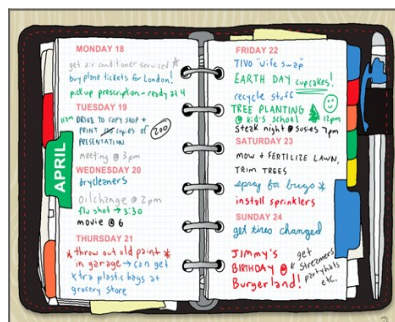 MONDAY 18
get air conditioner serviced *
buy plane tickets for London!
pick up prescription - ready at 4
TUESDAY 19
DRIVE TO COPY SHOP +
PRINT copies of 200
PRESENTATION
meeting @ 3pm
APRIL
WEDNESDAY 20
drycleaners
Oil change @ 2pm
flu shot → 3:30
movie @ 6
THURSDAY 21
* throw out old paint *
in garage → can get
xtra plastic bags at
grocery store
FRIDAY 22
TIVO "wife swap"
EARTH DAY cupcakes!
recycle stuff
TREE PLANTING
@ kid's school 12pm
steak night @ susies 7pm
SATURDAY 23
MOW + FERTILIZE LAWN,
TRIM TREES
spray for bugs *
install sprinklers
SUNDAY 24
get tires changed
JIMMY'S
BIRTHDAY @
Burgerland!
* get
streamers
partyhats
etc.